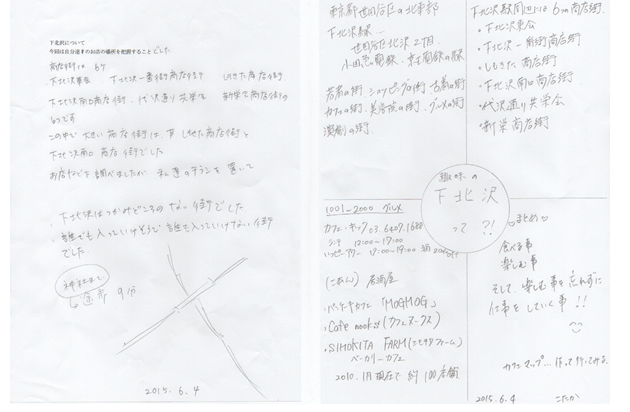 下北沢について
今回は自分達のお店の場所を把握することでした。
商店街は 6ヶ
下北沢東会 下北沢一番街商店街 しもきた商店街
下北沢南口商店街、代沢通り共栄会 新栄商店街の
6つです
この中で大きい商店街は、しもきた商店街と
下北沢南口商店街でした
・下北沢はつかみどころのない街でした
・誰でも入っていけそうで誰も入っていけない街
でした
9分
2015.6.4
東京都世田谷区の北東部
下北沢駅
世田谷区北沢2丁目
小田急電鉄、京王電鉄の駅
若者の街、ショッピングの街、古着の街
カフェの街、美容院の街、グルメの街
演劇の街
下北沢駅周辺には6つの商店街
・下北沢東会
・下北沢一番街商店街
・しもきた商店街
・下北沢南口商店街
・代沢通り共栄会
・新栄商店街
趣味の
下北沢
って ?!
1001-2000 グルメ
カフェ・キック 03.6407.1688
ランチ 12:00〜17:00
居酒屋
・ベーカリーカフェ「MOGMOG」
・Cafe nook's(カフェヌークス)
・SIMOKITA FARM(シモキタファーム)
ベーカリーカフェ
2010.1月現在で 約100店舗
まとめ
食べる事
楽しむ事
そして、楽しむ事を忘れずに
仕事をしていく事 !!
カフェマップ…作って行ってみる。
2015.6.4 こたか